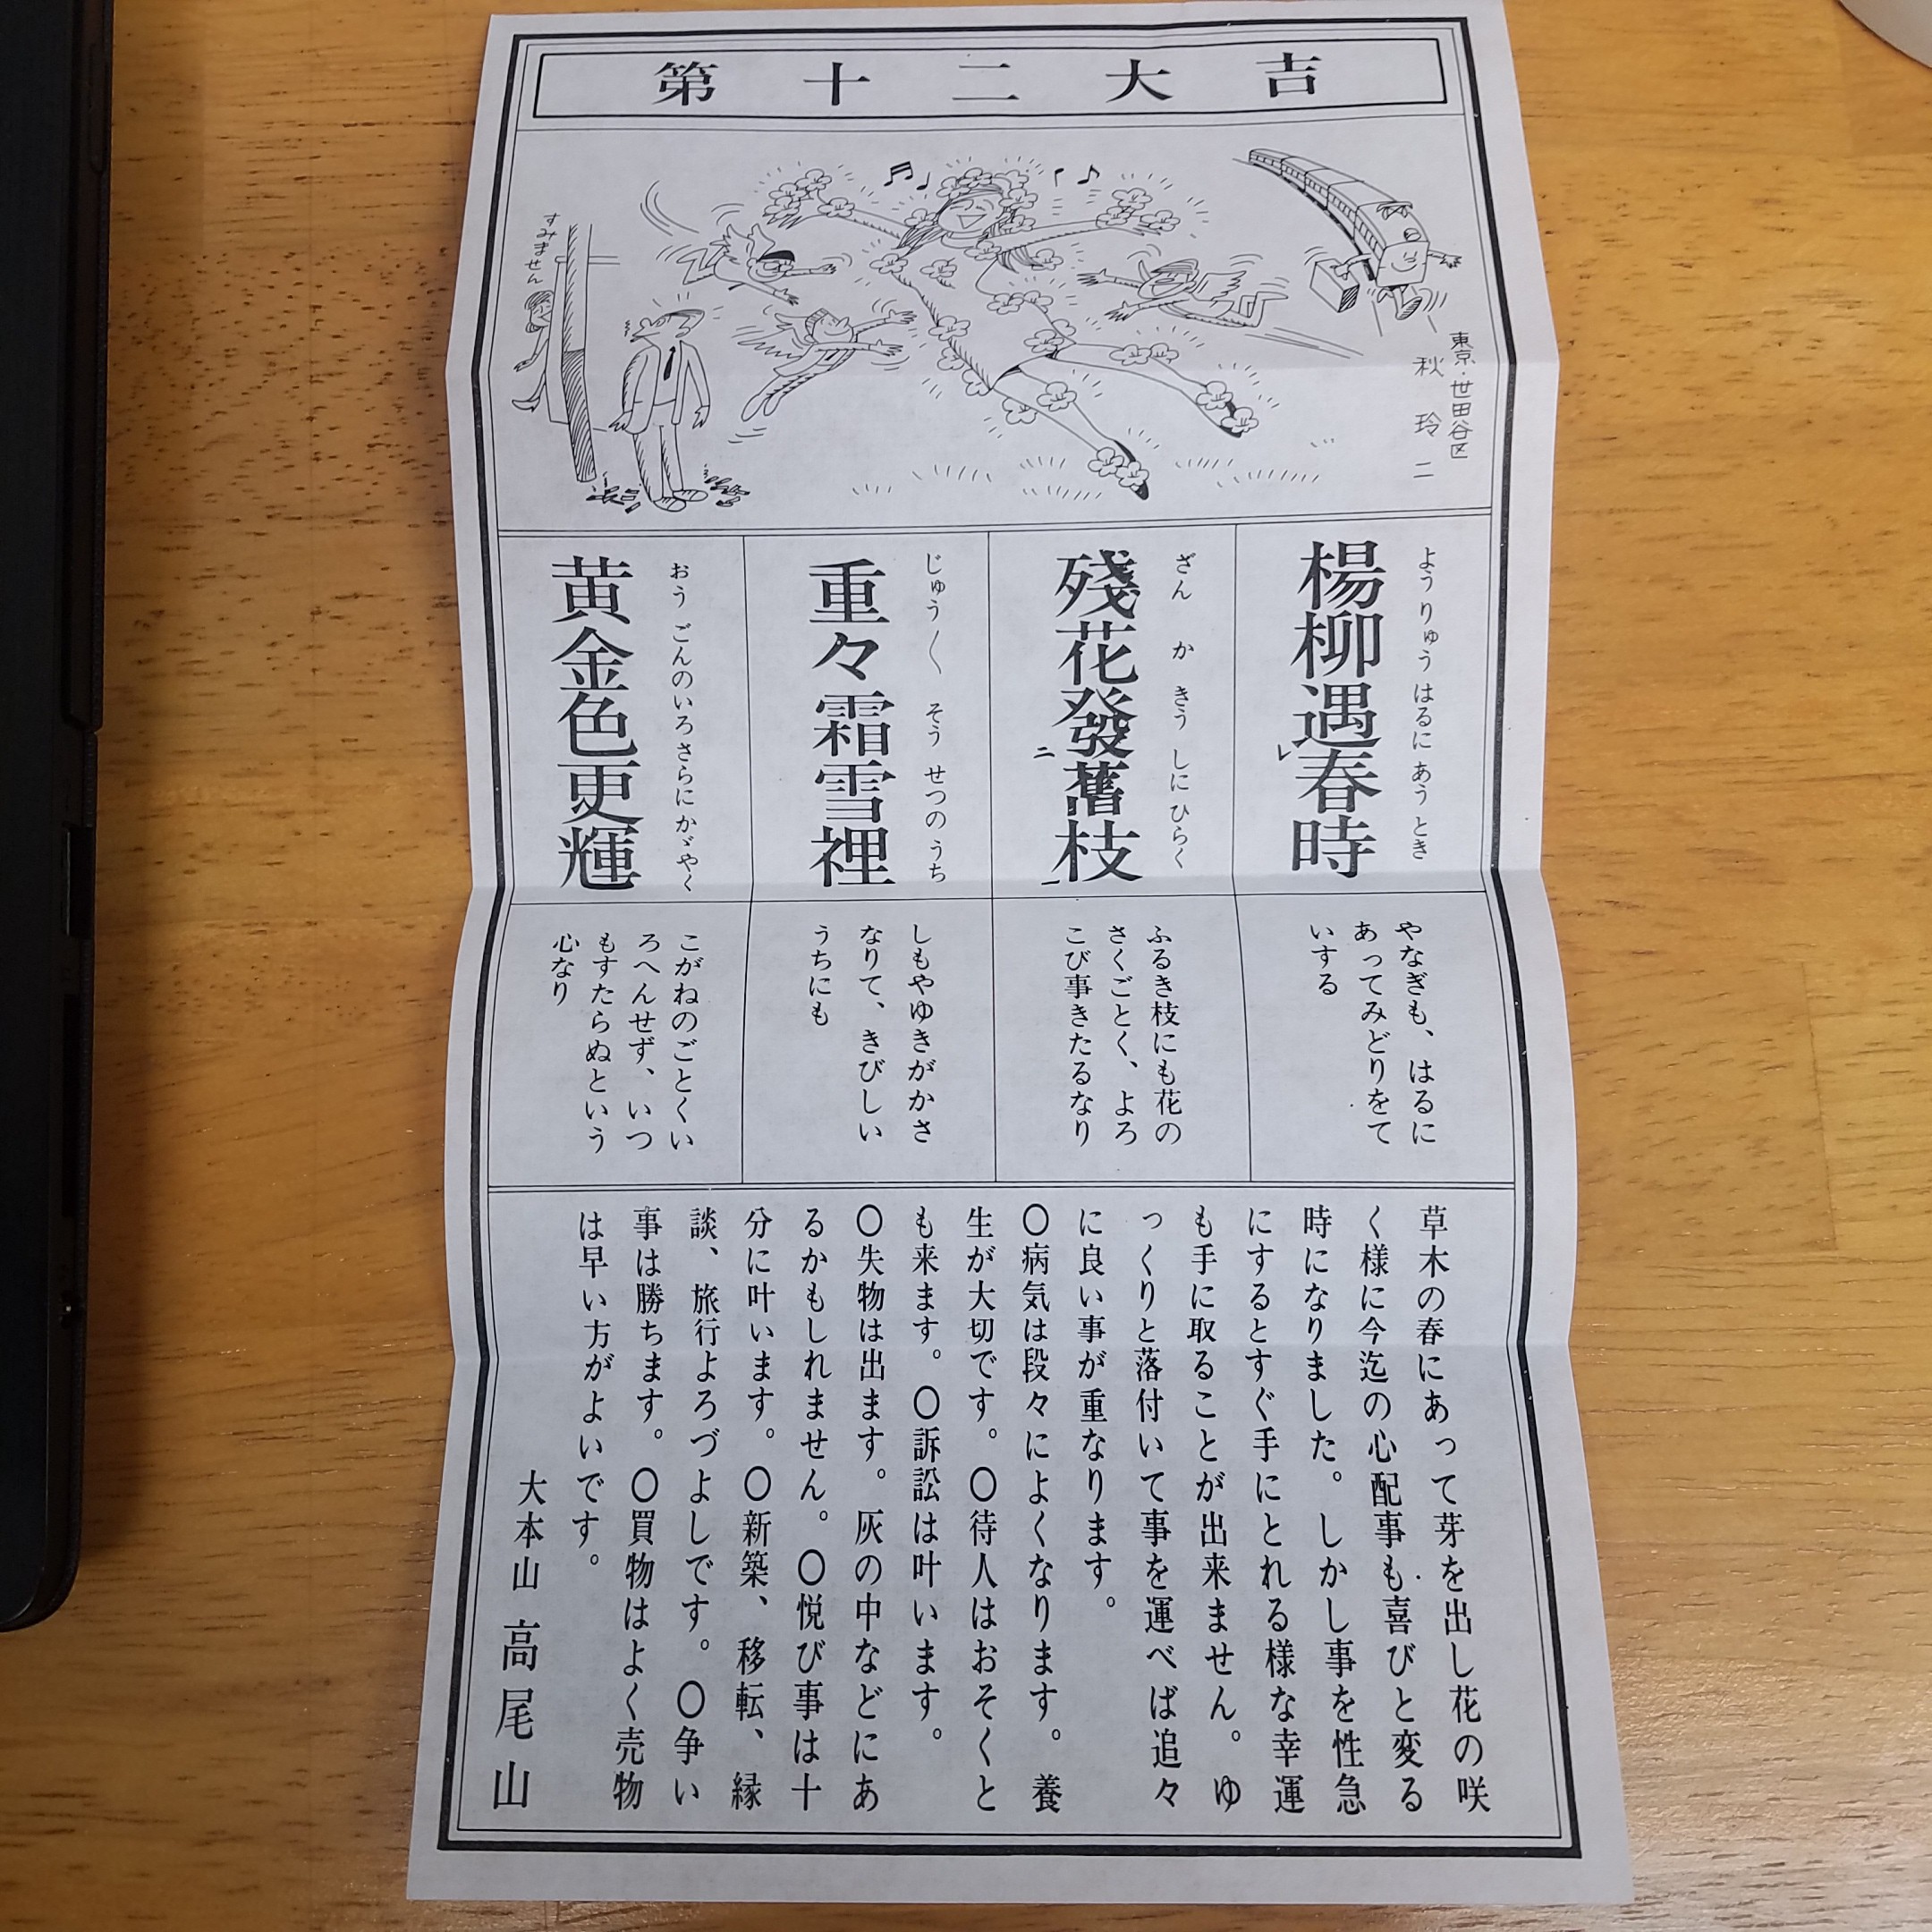 第十二大吉
東京・世田谷区
秋玲二
すみません
楊柳遇春時
レ
ようりゅうはるにあうとき
殘花發舊枝
二
一
ざんかきうしにひらく
重々霜雪裡
じゅう〱そうせつのうち
黄金色更輝
おうごんのいろさらにかゞやく
やなぎも、はるに
あってみどりをて
いする
ふるき枝にも花の
さくごとく、よろ
こび事きたるなり
しもやゆきがかさ
なりて、きびしい
うちにも
こがねのごとくい
ろへんせず、いつ
もすたらぬという
心なり
草木の春にあって芽を出し花の咲
く様に今迄の心配事も喜びと変る
時になりました。しかし事を性急
にするとすぐ手にとれる様な幸運
も手に取ることが出来ません。ゆ
っくりと落付いて事を運べば追々
に良い事が重なります。
〇病気は段々によくなります。養
生が大切です。〇待人はおそくと
も来ます。〇訴訟は叶います。
〇失物は出ます。灰の中などにあ
るかもしれません。〇悦び事は十
分に叶います。〇新築、移転、縁
談、旅行よろづよしです。〇争い
事は勝ちます。〇買物はよく売物
は早い方がよいです。
大本山 高尾山